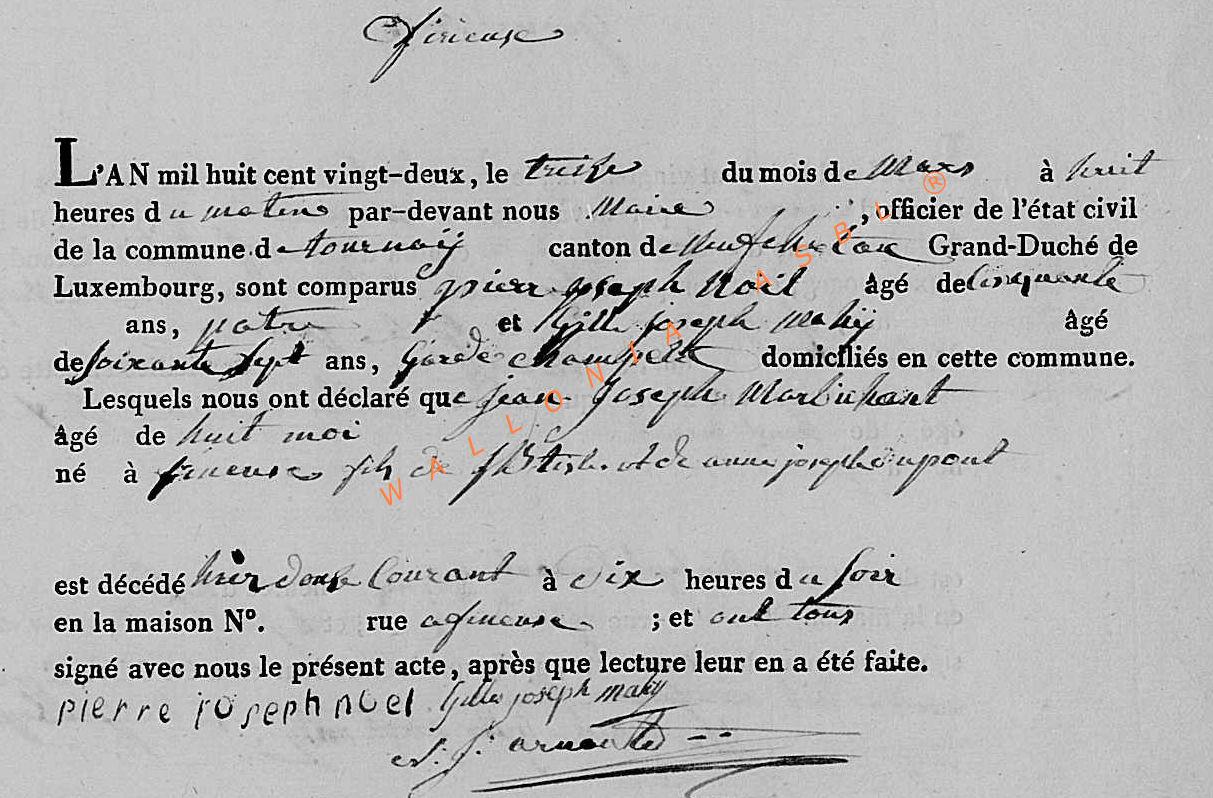 L'AN mil huit cent vingt-deux, le treize du mois de Mars à huit
heures du matin par-devant nous Maire, officier de l'état civil
de la commune de tournay canton de Neufchateau Grand-Duché de
Luxembourg, sont comparus pierre joseph Noël âgé de cinquante
ans, patre et Gille joseph mahy âgé
de soixante sept ans, Garde Champetre domiciliés en cette commune.
Lesquels nous ont déclaré que jean joseph
âgé de huit moi
né à fineuse fils de et de anne joseph dupont
est décédé hier douze Courant à six heures du soir
en la maison N°. rue a fineuse ; et ont tous
signé avec nous le présent acte, après que lecture leur en a été faite.
pierre joseph noel Gille joseph mahy
WALLONIA ASBL ®